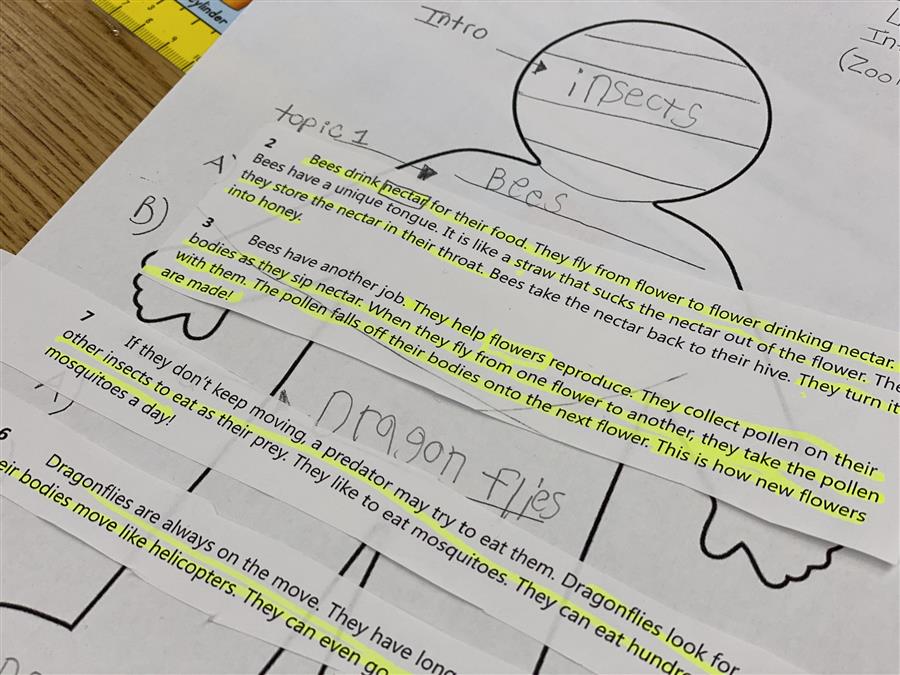 cylinder
Intro
insects
topic 1
A)
Bees
B)
2
Bees drink nectar for their food. They fly from flower to flower drinking nectar.
Bees have a unique tongue. It is like a straw that sucks the nectar out of the flower.
they store the nectar in their throat. Bees take the nectar back to their hive. They turn it
into honey.
3
Bees have another job. They help flowers reproduce. They collect pollen on their
bodies as they sip nectar. When they fly from one flower to another, they take the pollen
with them. The pollen falls off their bodies onto the next flower. This is how new flowers
are made!
Dragon flies
7
If they don't keep moving, a predator may try to eat them. Dragonflies look for
other insects to eat as their prey. They like to eat mosquitoes. They can eat
mosquitoes a day!
6
Dragonflies are always on the move. They have long
bodies move like helicopters. They can even go